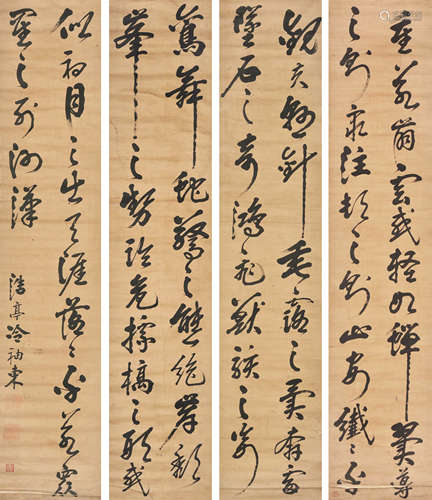 重若崩雲或輕如蟬翼導
之則泉注頓之則山安纖〻乎
觀夫懸針垂露之異奔雷
墜石之奇鴻飛獸駭之姿
鸞舞蛇驚之態絕岸頹
峯之勢臨危據槁之形或
似初月之出天涯落〻乎若眾
星之列河漢
亭冷袖東